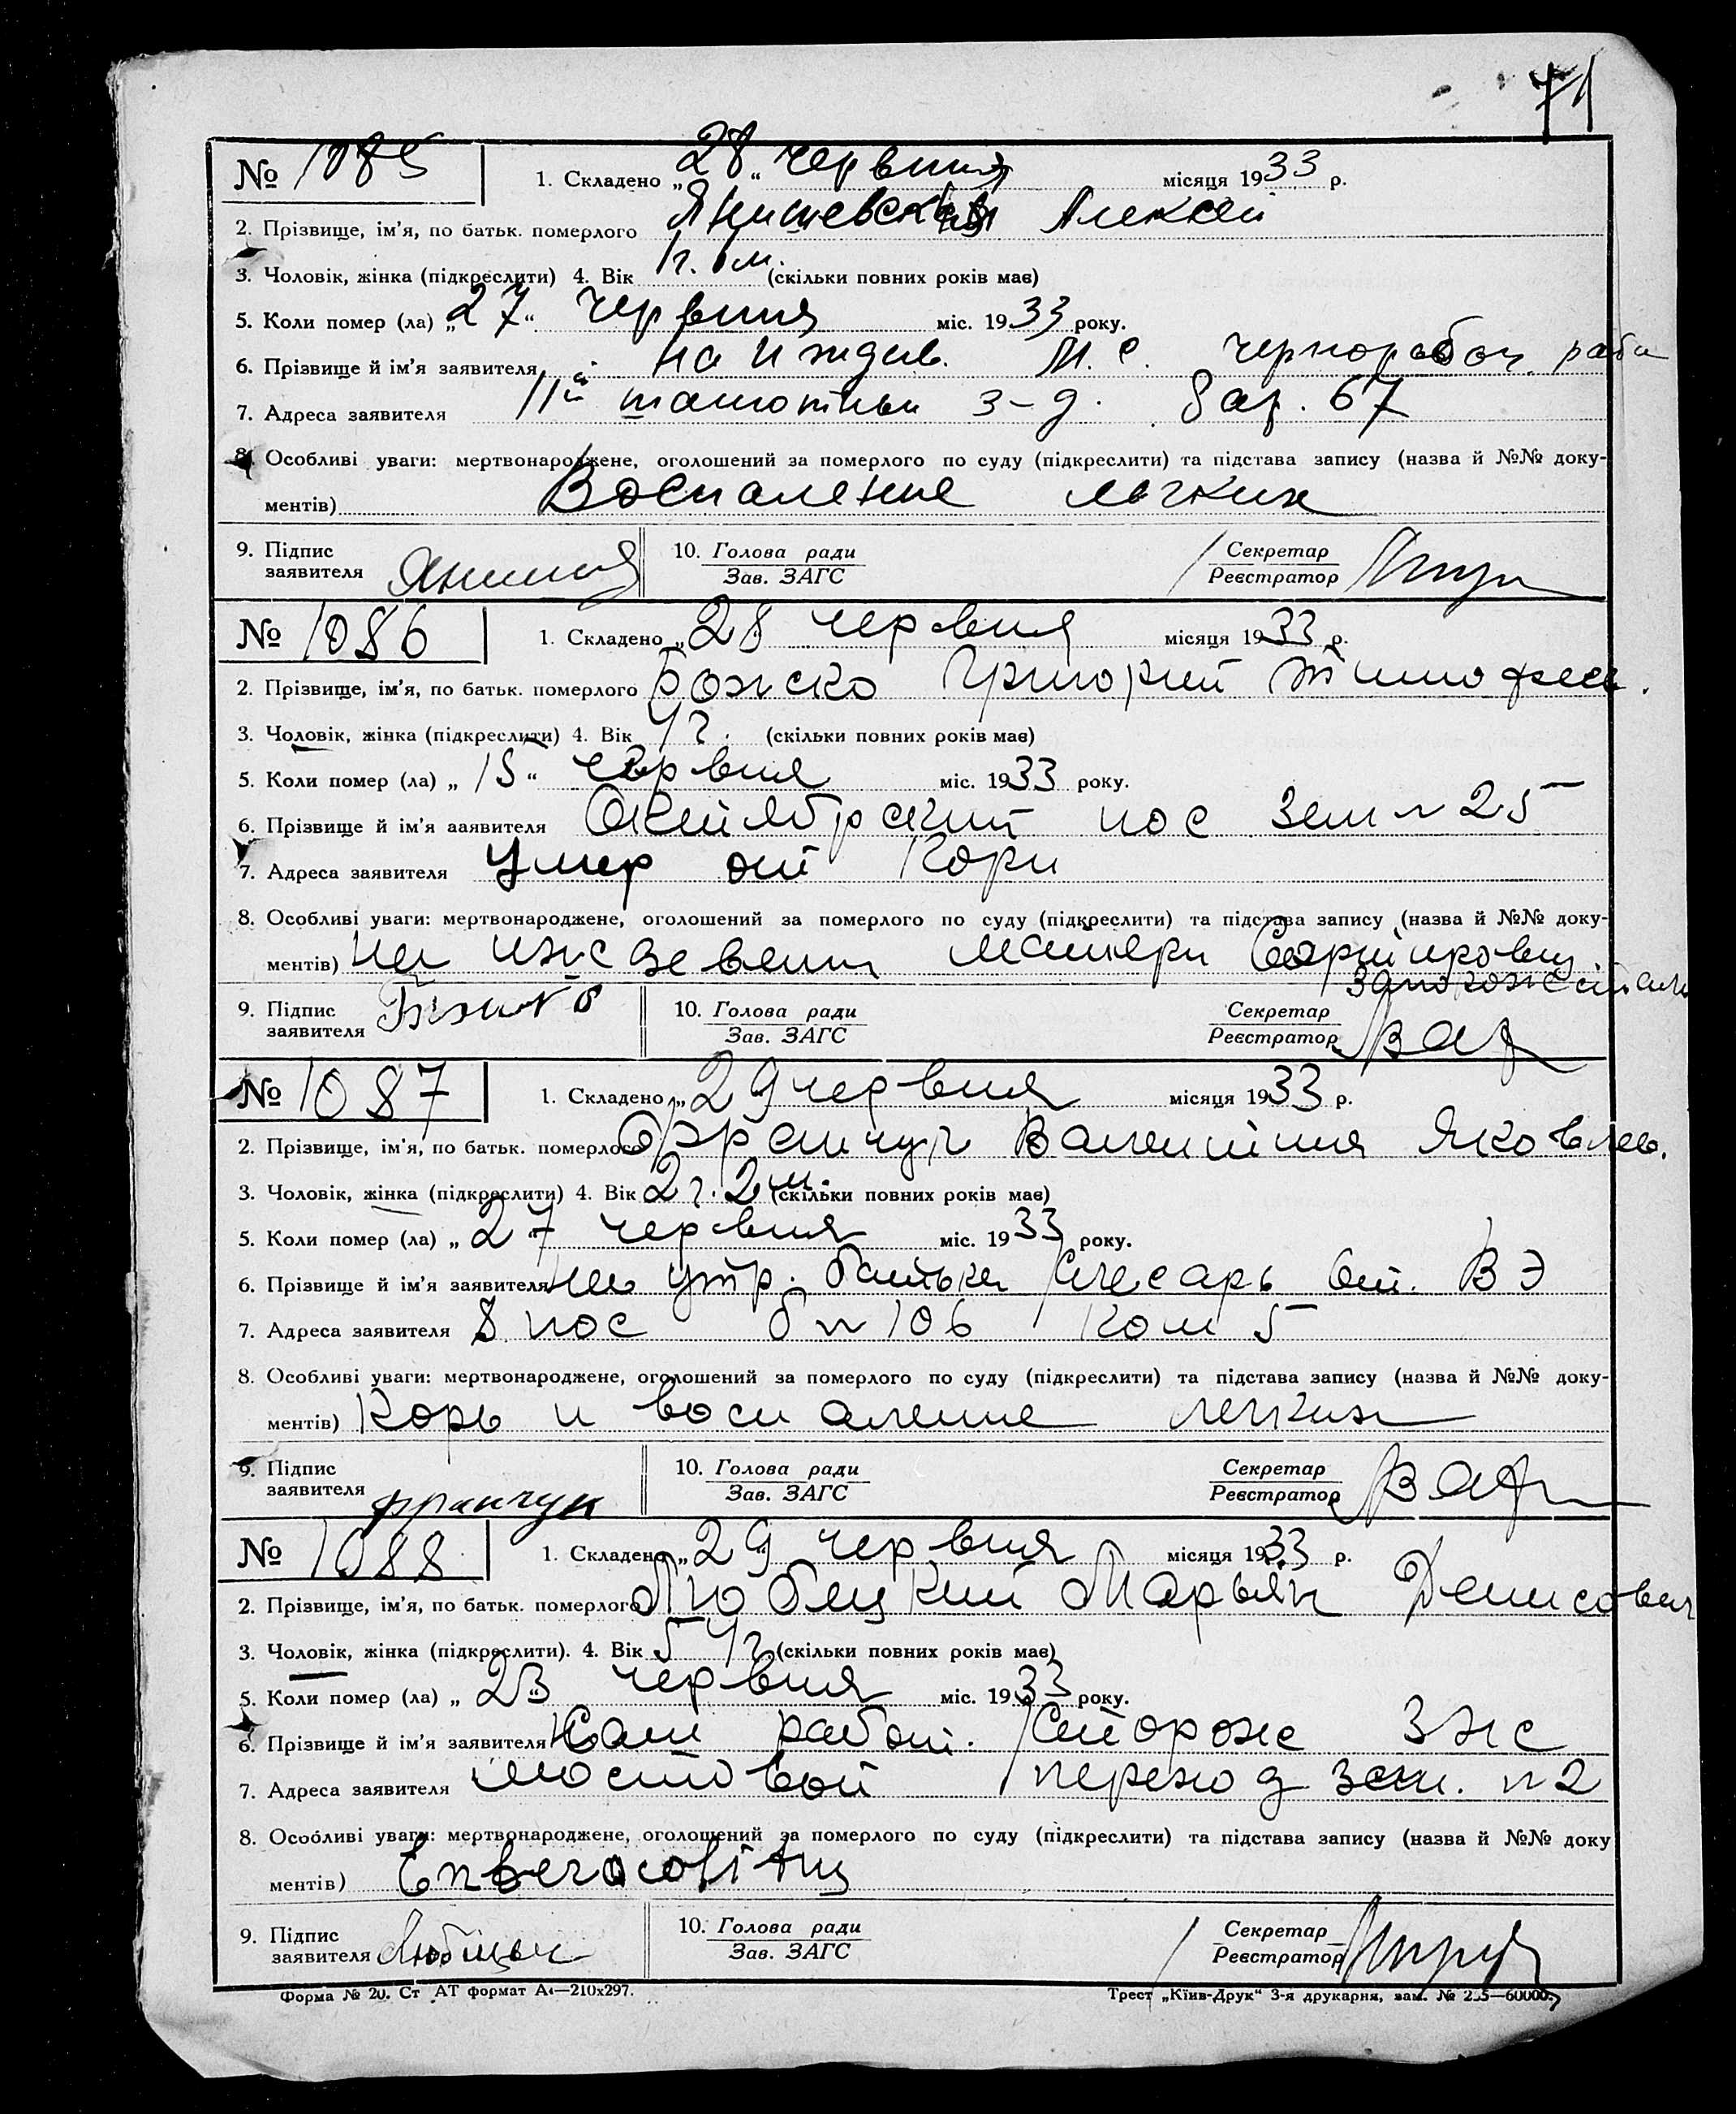 71
№ 1085 1. Складено „28“ червня місяця 1933 р.
2. Прізвище, ім'я, по батьк. померлого Алексей
3. Чоловік, жінка (підкреслити) 4. Вік 1 г. м. (скільки повних років має)
5. Коли помер (ла) „27“ червня міс. 1933 року.
6. Прізвище й ім'я заявителя на иждив. М. С. чернорабоч.
7. Адреса заявителя шамотный з-д. бар. 67
8. Особливі уваги: мертвонароджене, оголошений за померлого по суду (підкреслити) та підстава запису (назва й №№ доку-
ментів) Воспаление легких
9. Підпис заявителя 10. Голова ради Зав. ЗАГС Секретар Реєстратор
№ 1086 1. Складено „28 червня місяця 1933 р.
2. Прізвище, ім'я, по батьк. померлого Божко Григорий Тимофеев.
3. Чоловік, жінка (підкреслити) 4. Вік г. (скільки повних років має)
5. Коли помер (ла) „15“ червня міс. 1933 року.
6. Прізвище й ім'я заявителя Октябрский пос зем n 25
7. Адреса заявителя умер от Кори
8. Особливі уваги: мертвонароджене, оголошений за померлого по суду (підкреслити) та підстава запису (назва й №№ доку-
ментів) на матери
9. Підпис заявителя 10. Голова ради Зав. ЗАГС Секретар Реєстратор
№ 1087 1. Складено „29 червня місяця 1933 р.
2. Прізвище, ім'я, по батьк. померлого Франчук Валентина Яковлев.
3. Чоловік, жінка (підкреслити) 4. Вік 2 г. 2 м. (скільки повних років має)
5. Коли помер (ла) „27 червня міс. 1933 року.
6. Прізвище й ім'я заявителя на утр. батька Слесарь ВЭ
7. Адреса заявителя 8 пос б n 106 Ком 5
8. Особливі уваги: мертвонароджене, оголошений за померлого по суду (підкреслити) та підстава запису (назва й №№ доку-
ментів) Корь и воспаление легких
9. Підпис заявителя Франчук 10. Голова ради Зав. ЗАГС Секретар Реєстратор
№ 1088 1. Складено „29 червня місяця 1933 р.
2. Прізвище, ім'я, по батьк. померлого Любецкий Марьян Денисович
3. Чоловік, жінка (підкреслити). 4. Вік (скільки повних років має)
5. Коли помер (ла) „23 червня міс. 1933 року.
6. Прізвище й ім'я заявителя Сам работ. Сторож
7. Адреса заявителя мостовой переход зем. n 2
8. Особливі уваги: мертвонароджене, оголошений за померлого по суду (підкреслити) та підстава запису (назва й №№ доку
ментів)
9. Підпис заявителя 10. Голова ради Зав. ЗАГС Секретар Реєстратор
Форма № 20. Ст АТ формат А4—210х297. Трест „Київ-Друк“ 3-я друкарня, зам. №